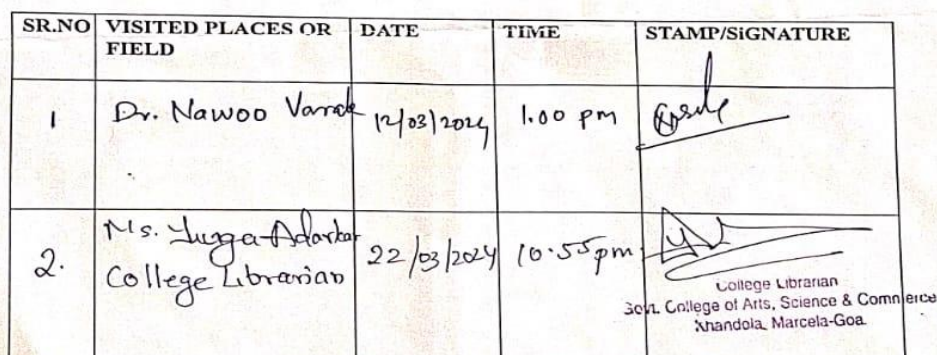 SR.NO VISITED PLACES OR FIELD DATE TIME STAMP/SIGNATURE
1 Dr. Nawoo 12/03/2024 1.00 pm
2. Ms. Yuga Adarkar 22/03/2024 10.55pm
College Librarian
College Librarian
Govt. College of Arts, Science & Commerce
Khandola, Marcela-Goa.